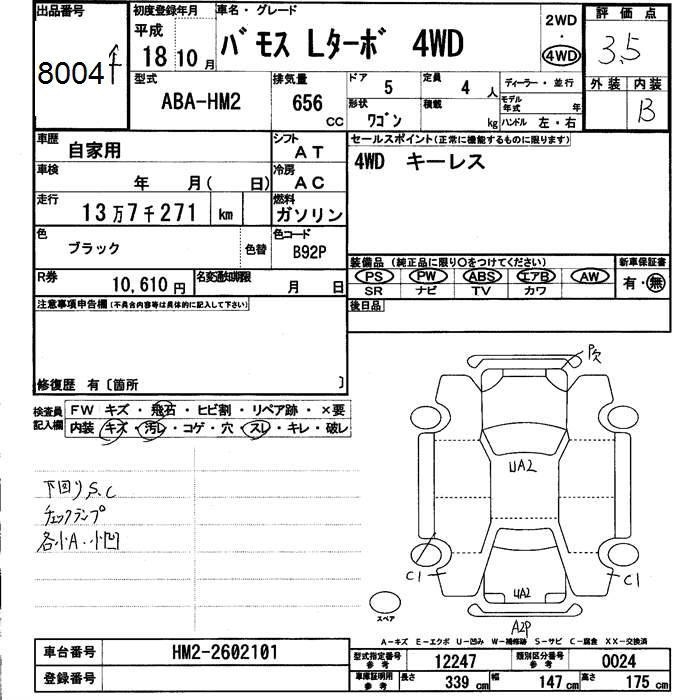 出品番号
8004
初度登録年月
平成
18 10 月
車名・グレード
バモス Lターボ 4WD
2WD
・
4WD
評価点
3.5
外装 内装
B
型式
ABA-HM2
排気量
656 CC
ドア 5
形状 ワゴン
定員 4 人
積載 kg
ディーラー・並行
モデル年式 年
ハンドル 左・右
車歴
自家用
シフト
AT
車検
年 月( 日)
冷房
AC
走行
13万7千271 km
燃料
ガソリン
色
ブラック 色替
色コード
B92P
R券
10,610 円
名変通知期限
月 日
セールスポイント(正常に機能するものに限ります)
4WD キーレス
装備品 (純正品に限り○をつけてください)
PS PW ABS エアB AW
SR ナビ TV カワ
新車保証書
有・無
後日品
注意事項申告欄(不具合内容等は具体的に記入して下さい)
修復歴 有〔箇所 〕
検査員記入欄
FW キズ・飛石・ヒビ割・リペア跡・×要
内装 キズ・汚レ・コゲ・穴・スレ・キレ・破レ
下回りS.C
チェックランプ
各小A・小凹
P欠
UA2
C1
C1
UA2
A2P
スペア
A-キズ E-エクボ U-凹み W-補修跡 S-サビ C-腐食 XX-交換済
車台番号
HM2-2602101
登録番号
型式指定番号 参考
12247
類別区分番号 参考
0024
車庫証明用 参考
長さ 339 cm
幅 147 cm
高さ 175 cm